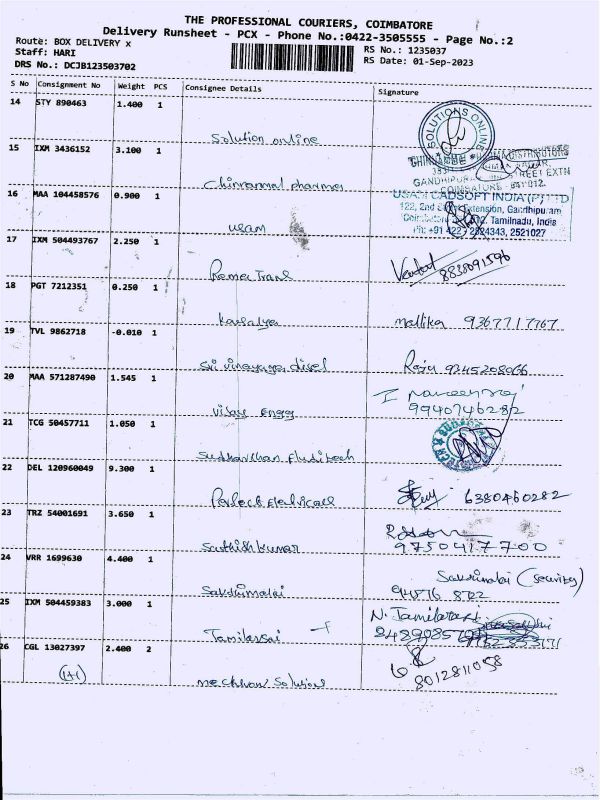 THE PROFESSIONAL COURIERS, COIMBATORE
Delivery Runsheet - PCX - Phone No.:0422-3505555 - Page No.:2
Route: BOX DELIVERY x
RS No.: 1235037
Staff: HARI
RS Date: 01-Sep-2023
DRS No.: DCJB123503702
S No Consignment No Weight PCS Consignee Details Signature
14 STY 890463 1.400 1
Solution online
SOLUTIONS ONLINE
15 IXM 3436152 3.100 1
pharma
DISTRIBUTORS
GANDHIPURAM STREET EXTN
COIMBATORE - 641 012.
16 MAA 104458576 0.900 1
usam
USAM CADSOFT INDIA (P) LTD
122, 2nd Extension, Gandhipuram
Tamilnadu, India
Ph: +91 422 - 2524343, 2521027
17 IXM 504493767 2.250 1
Remee Trans
Venkat 8838091596
18 PGT 7212351 0.250 1
kousalya
mallika 9367717767
19 TVL 9862718 -0.010 1
Sri vinayaga disel
Raju 9245208066
20 MAA 571287490 1.545 1
vijay Engg
I Naveenraj
9940746282
21 TCG 50457711 1.050 1
Sudharshan
22 DEL 120960049 9.300 1
6380460282
23 TRZ 54001691 3.650 1
Sathishkumar
9750417700
24 VRR 1699630 4.400 1
(Security)
25 IXM 504459383 3.000 1
Tamilarasi
N. Tamilarasi
26 CGL 13027397 2.400 2
(1+1)
Solutions
8012811058